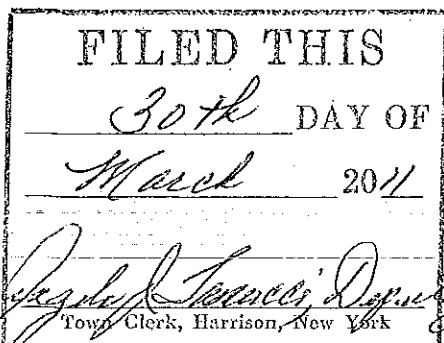 FILED THIS
30th DAY OF
March 2011
Deputy
Town Clerk, Harrison, New York